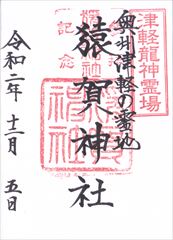 津軽龍神霊場
奥州津軽の霊地
猿賀神社
令和二年十二月五日